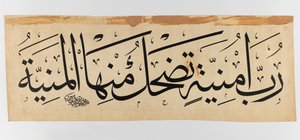 رُبَّ اُمْنِيَّةٍ تَضْحَكُ مِنْهَا الْمَنِيَّةُ